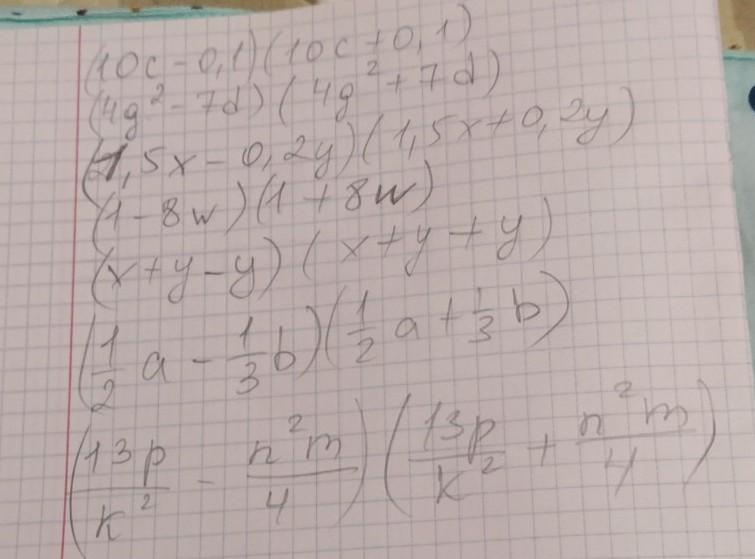 (10c - 0,1)(10c + 0,1)
(4g² - 7d)(4g² + 7d)
(1,5x - 0,2y)(1,5x + 0,2y)
(1 - 8w)(1 + 8w)
(x + y - y)(x + y + y)
(1/2 a - 1/3 b)(1/2 a + 1/3 b)
(13p/k² - n²m/4)(13p/k² + n²m/4)